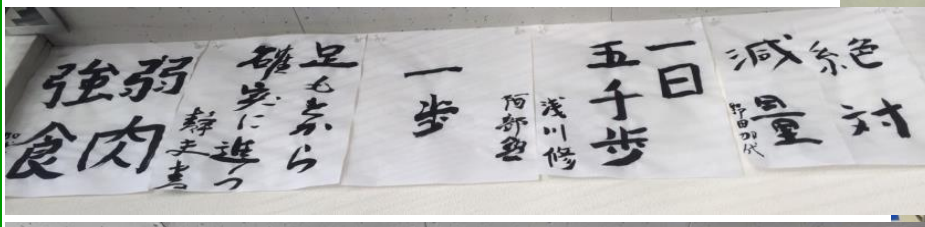 絶対
減量
野田加代
一日
五千歩
浅川修
一歩
阿部
足もとから
確実に進つ
静夫書
弱肉
強食